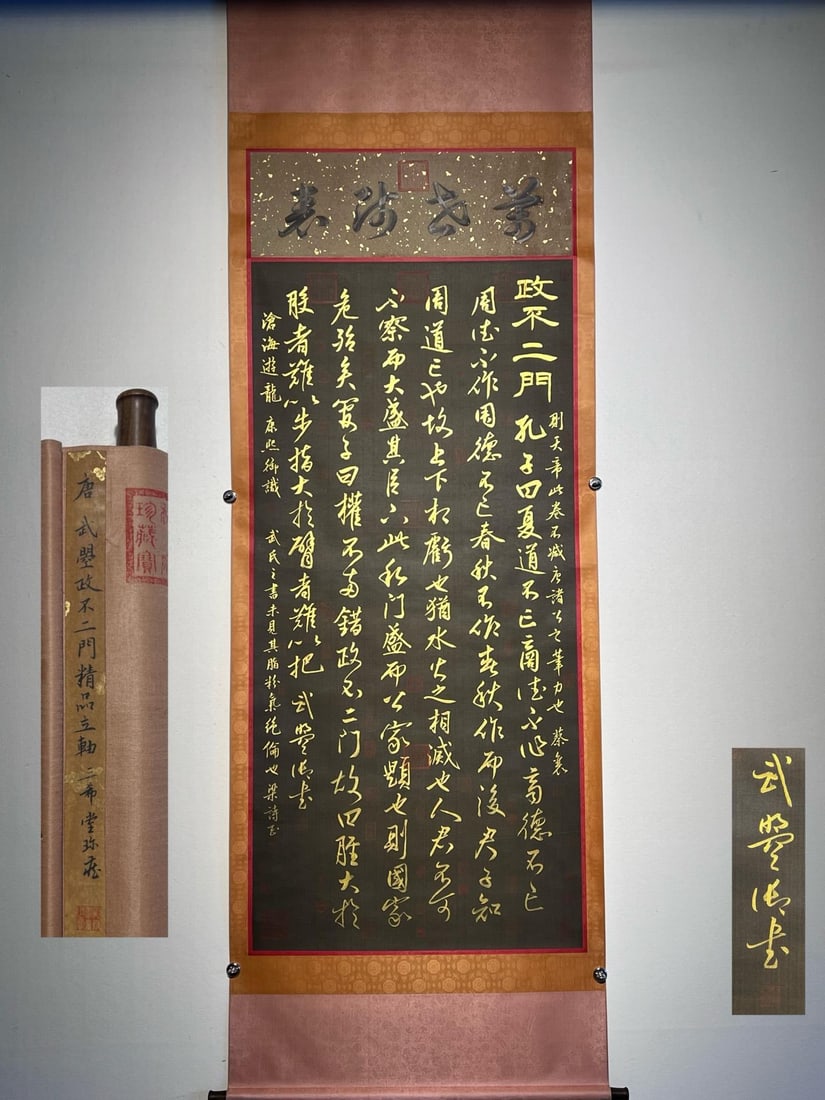 萬世師表
政不二門
則天帝此卷不減唐諸公之筆力也 蔡襄
孔子曰夏道不亡商德不作商德不亡
周德不作周德不亡春秋不作春秋作而後君子知
周道亡也故上下相虧也猶水火之相滅也人君不可
不察而大盛其臣下此私門盛而公家也則國家
危殆矣子曰權不兩錯政不二門故曰脛大於
股者難以步指大於臂者難以把 武曌御書
滄海遊龍 康熙御識 武氏之書未見其脂粉氣絕倫也 梁詩正
唐 武曌政不二門精品立軸 三希堂珍藏
珍藏寶
武曌御書